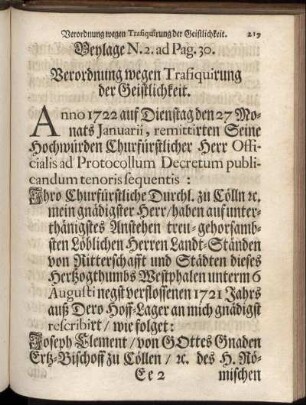 Verordnung wegen Trafiquirung der Geistlichkeit. 219
Beylage N. 2. ad Pag. 30.
Verordnung wegen Trafiquirung
der Geistlichkeit.
Anno 1722 auf Dienstag den 27 Mo-
nats Januarii, remittirten Seine
Hochwürden Churfürstlicher Herr Offi-
cialis ad Protocollum Decretum publi-
candum tenoris sequentis:
Ihro Churfürstliche Durchl. zu Cölln ꝛc.
mein gnädigster Herr/ haben auf unter-
thänigstes Anstehen treu-gehorsamb-
sten Löblichen Herren Landt-Ständen
von Ritterschafft und Städten dieses
Hertzogthumbs Westphalen unterm 6
Augusti negst verflossenen 1721 Jahrs
auß Dero Hoff-Lager an mich gnädigst
rescribirt/ wie folget:
Joseph Clement/ von GOttes Gnaden
Ertz-Bischoff zu Cöllen/ ꝛc. des H. Rö-
Ee 2 mischen